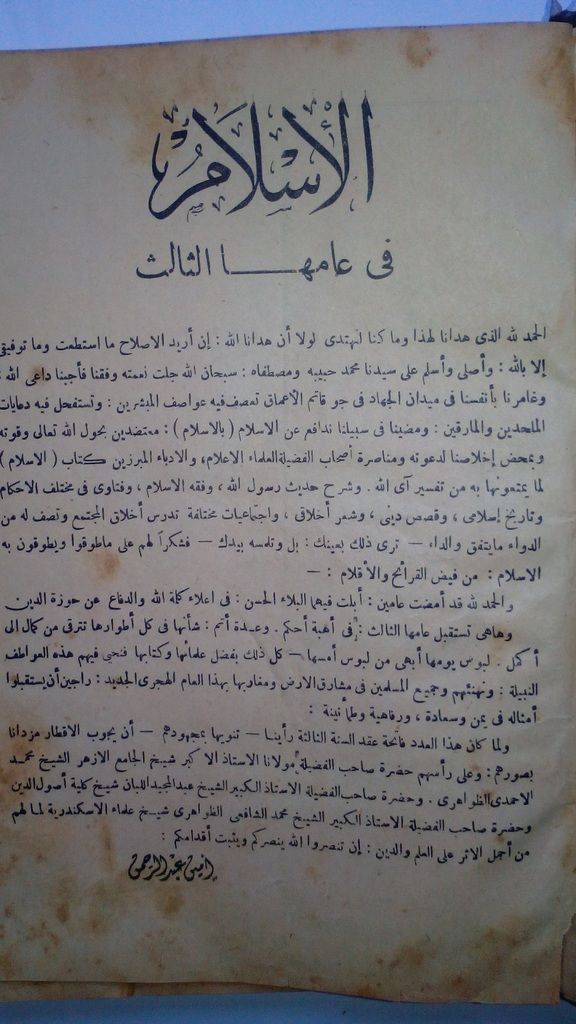 الإسلام
فى عامها الثالث
الحمد لله الذى هدانا لهذا وما كنا لنهتدى لولا أن هدانا الله : إن أريد الاصلاح ما استطعت وما توفيقى
إلا بالله : وأصلى وأسلم على سيدنا محمد حبيبه ومصطفاه : سبحان الله جلت نعمته وفقنا فأجبنا داعى الله :
وغامرنا بأنفسنا فى ميدان الجهاد فى جو قاتم الأعماق تعصف فيه عواصف المبشرين : وتستفحل فيه دعايات
الملحدين والمارقين : ومضينا فى سبيلنا ندافع عن الاسلام ( بالاسلام ) : معتضدين بحول الله تعالى وقوته
وبمحض إخلاصنا لدعوته ومناصرة أصحاب الفضيلة العلماء الاعلام، والادباء المبرزين كتاب ( الاسلام )
لما يمتعونها به من تفسير آى الله . وشرح حديث رسول الله ، وفقه الاسلام ، وفتاوى فى مختلف الاحكام
وتاريخ إسلامى ، وقصص دينى ، وشعر أخلاقى ، واجتماعيات مختلفة تدرس أخلاق المجتمع وتصف له من
الدواء مايتفق والداء — ترى ذلك بعينك : بل وتلمسه بيدك — فشكراً لهم على ماطوقوا ويطوقون به
الاسلام : من فيض القرائح والأقلام : —
والحمد لله قد أمضت عامين : أبلت فيهما البلاء الحسن : فى اعلاء كلمة الله والدفاع عن حوزة الدين
وهاهى تستقبل عامها الثالث : فى أهبة أحكم . وعدة أتم : شأنها فى كل أطوارها تترقى من كمال إلى
أكمل . لبوس يومها أبهى من لبوس أمسها — كل ذلك بفضل علمائها وكتابها فنحيى فيهم هذه العواطف
النبيلة : ونهنئهم وجميع المسلمين فى مشارق الارض ومغاربها بهذا العام الهجرى الجديد : راجين أن يستقبلوا
أمثاله فى يمن وسعادة ، ورفاهية وطمأنينة :
ولما كان هذا العدد فاتحة عقد السنة الثالثة رأينا — تنويها بمجهودهم — أن يجوب الاقطار مزدانا
بصورهم : وعلى رأسهم حضرة صاحب الفضيلة مولانا الاستاذ الاكبر شيخ الجامع الازهر الشيخ محمد
الاحمدى الظواهرى . وحضرة صاحب الفضيلة الاستاذ الكبير الشيخ عبد المجيد اللبان شيخ كلية أصول الدين
وحضرة صاحب الفضيلة الاستاذ الكبير الشيخ محمد الشافعى الظواهرى شيخ علماء الاسكندرية لما لهم
من أجمل الاثر على العلم والدين : إن تنصروا الله ينصركم ويثبت أقدامكم :
امين عبد الرحمن